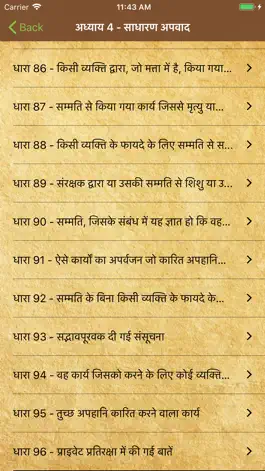 Carrier 11:43 AM
Back अध्याय 4 - साधारण अपवाद
धारा 86 - किसी व्यक्ति द्वारा, जो मत्ता में है, किया गया...
धारा 87 - सम्मति से किया गया कार्य जिससे मृत्यु या...
धारा 88 - किसी व्यक्ति के फायदे के लिए सम्मति से स...
धारा 89 - संरक्षक द्वारा या उसकी सम्मति से शिशु या उ...
धारा 90 - सम्मति, जिसके संबंध में यह ज्ञात हो कि वह...
धारा 91 - ऐसे कार्यों का अपवर्जन जो कारित अपहानि...
धारा 92 - सम्मति के बिना किसी व्यक्ति के फायदे के...
धारा 93 - सद्भावपूरवक दी गई संसूचना
धारा 94 - वह कार्य जिसको करने के लिए कोई व्यक्ति...
धारा 95 - तुच्छ अपहानि कारित करने वाला कार्य
धारा 96 - प्राइवेट प्रतिरक्षा में की गई बातें